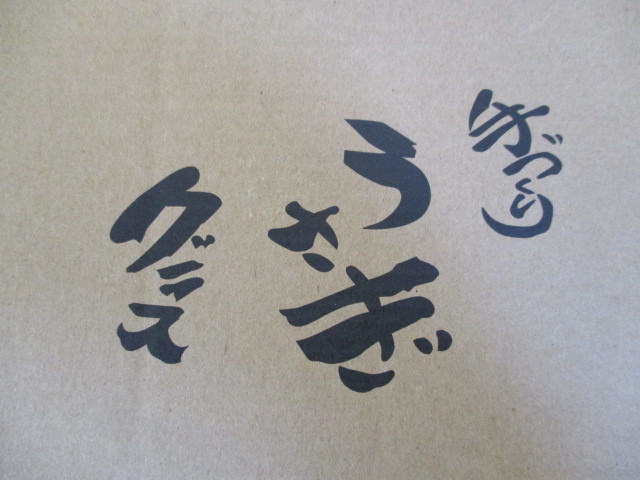 手づくり
うさぎ
グラス